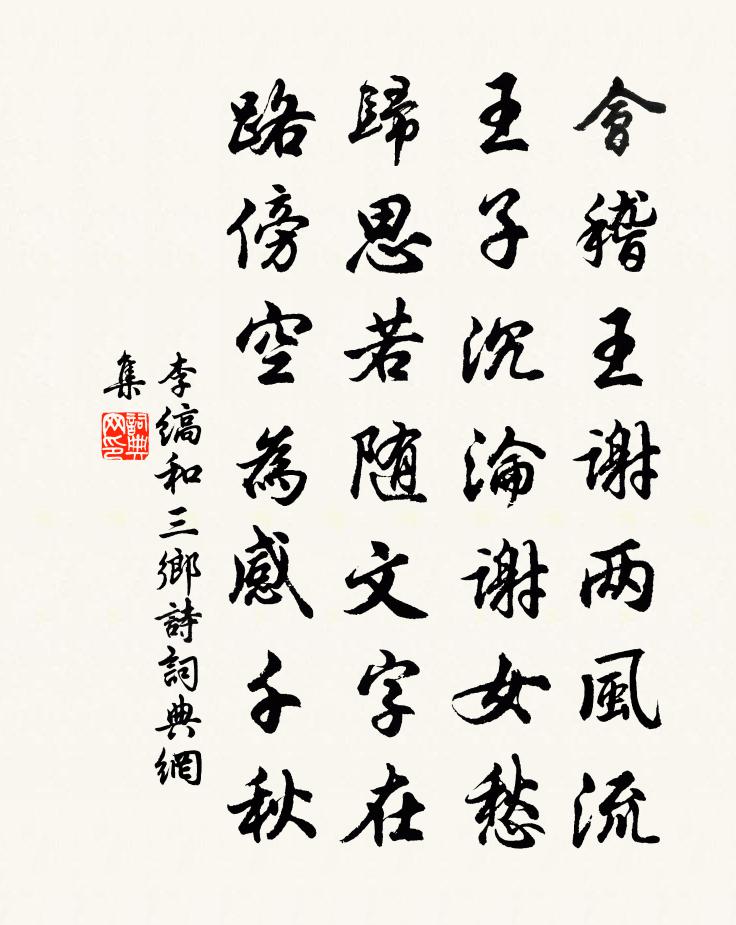 會稽王謝两風流
王子沉淪謝女愁
歸思若随文字在
路傍空為感千秋
李縞和三鄉詩詞典網
集
詞典网印